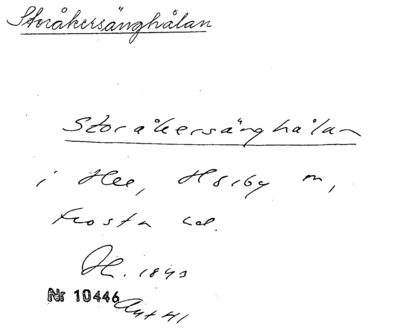 Storåkersänghålan
Storåkersänghålan
i Hee, Hörby m,
Frosta hd.
1843
Nr 10446